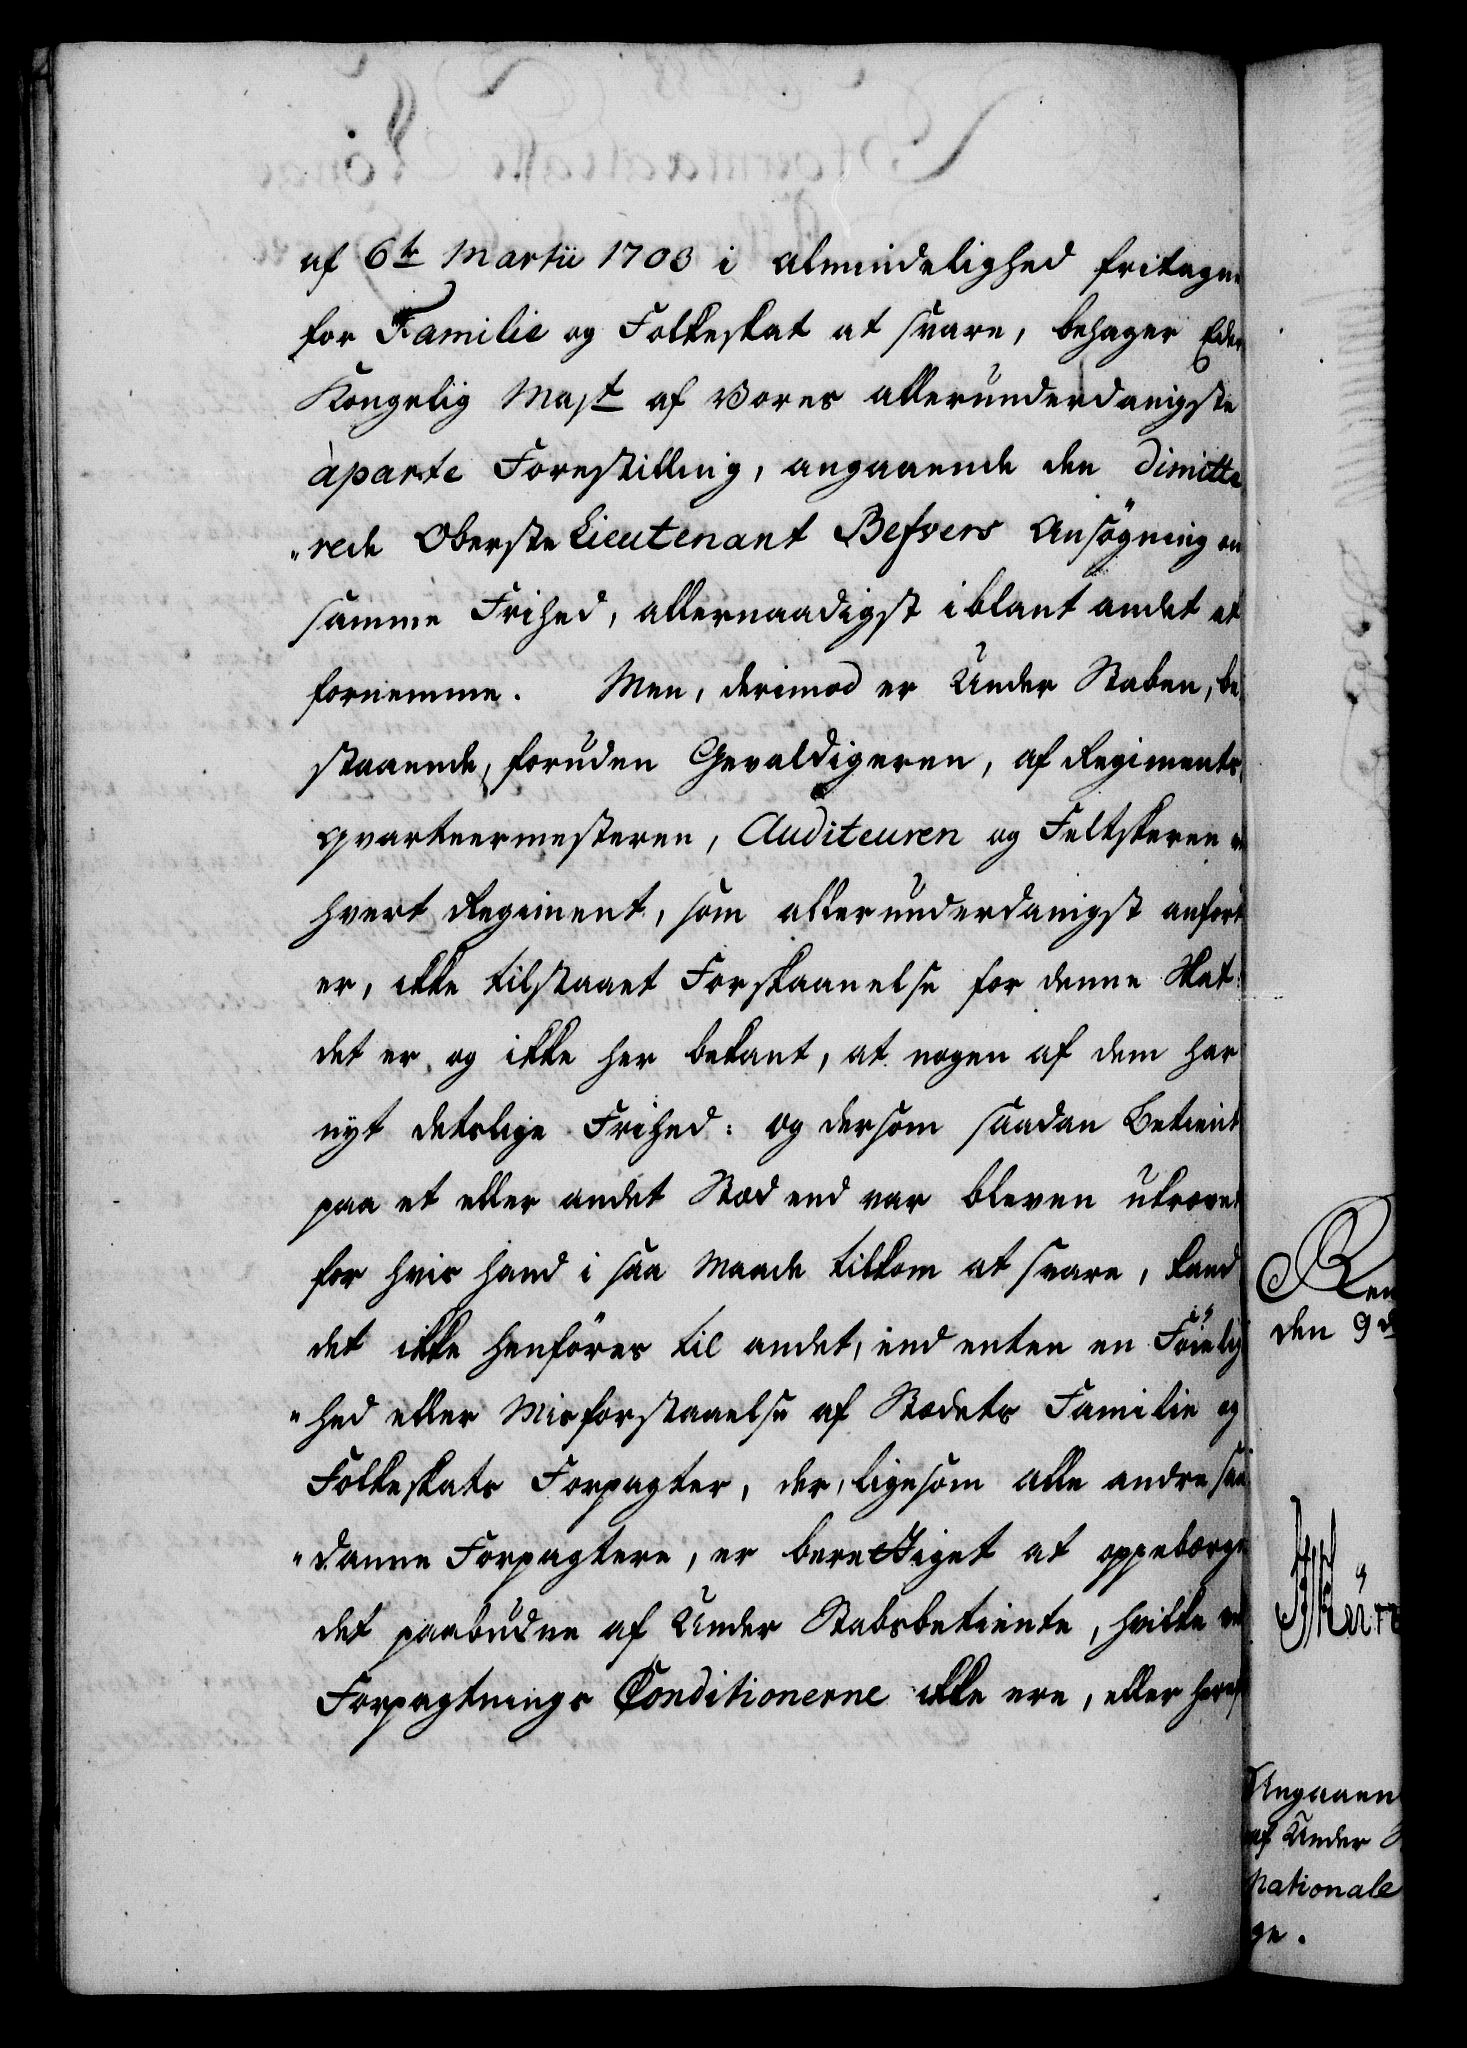 af 6te Martii 1703 i almindelighed fritagne
for Familie og Folkeskat at svare, behager Eder
Kongelig Majt af Vores allerunderdanigste
àparte Forestilling, angaaende den dimitte
"rede Oberste Lieutenant Befvers Ansögning om
samme Frihed, allernaadigst iblant andet at
fornemme. Men, derimod er Under Staben, be
staaende, foruden Gevaldigeren, af Regiments
qvarteermesteren, Auditeuren og Feltskeren ved
hvert Regiment, som allerunderdanigst anfört
er, ikke tilstaaet Forskaanelse for denne Skat:
det er og ikke her bekant, at nogen af dem har
nyt deslige Frihed: og dersom saadan Betient
paa et eller andet Stæd end var bleven ukrævet
for hvis hand i saa Maade tilkom at svare, kand
det ikke henföres til andet, end enten en Föielig
"hed eller Misforstaaelse af Stædets Familie og
Folkeskats Forpagter, der, ligesom alle andre saa
"danne Forpagtere, er berettiget at oppebærge
det paabudne af Under Stabsbetiente, hvilke ved
Forpagtnings Conditionerne ikke ere, eller heref
Ren
den 9d
Angaaen
af Under
Nationale
ge.